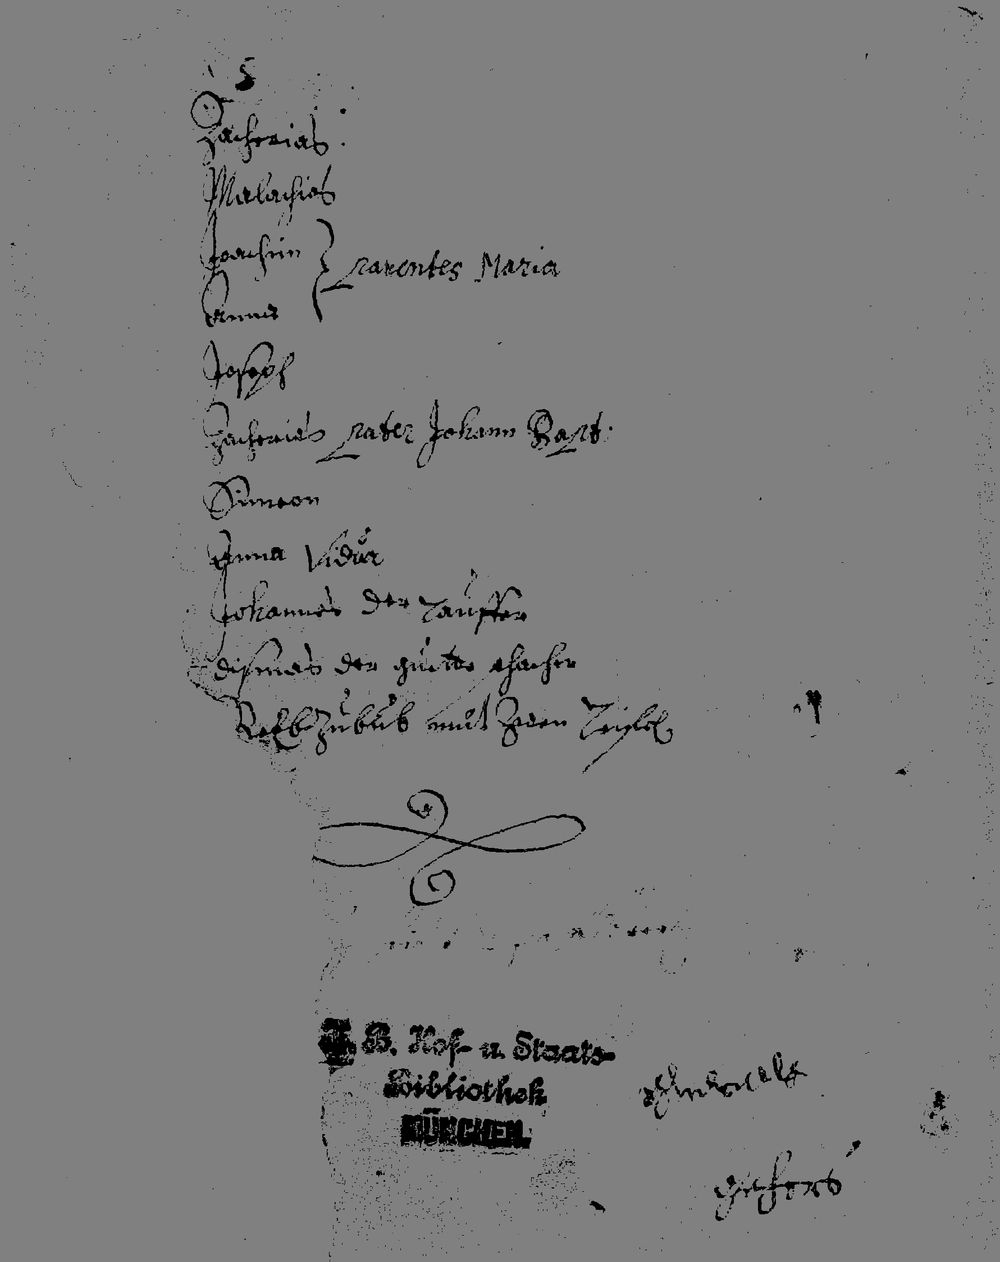 5
Zacherias
Malachias
Joachim
parentes Maria
Anna
Joseph
Zacherias pater Johann Bapt:
Simeon
Anna Vidua
Johannes der Tauffer
dismas der guette schacher
Beelbzubub mit Zween Teifel
K. B. Hof- u. Staats-
Bibliothek
MÜNCHEN.